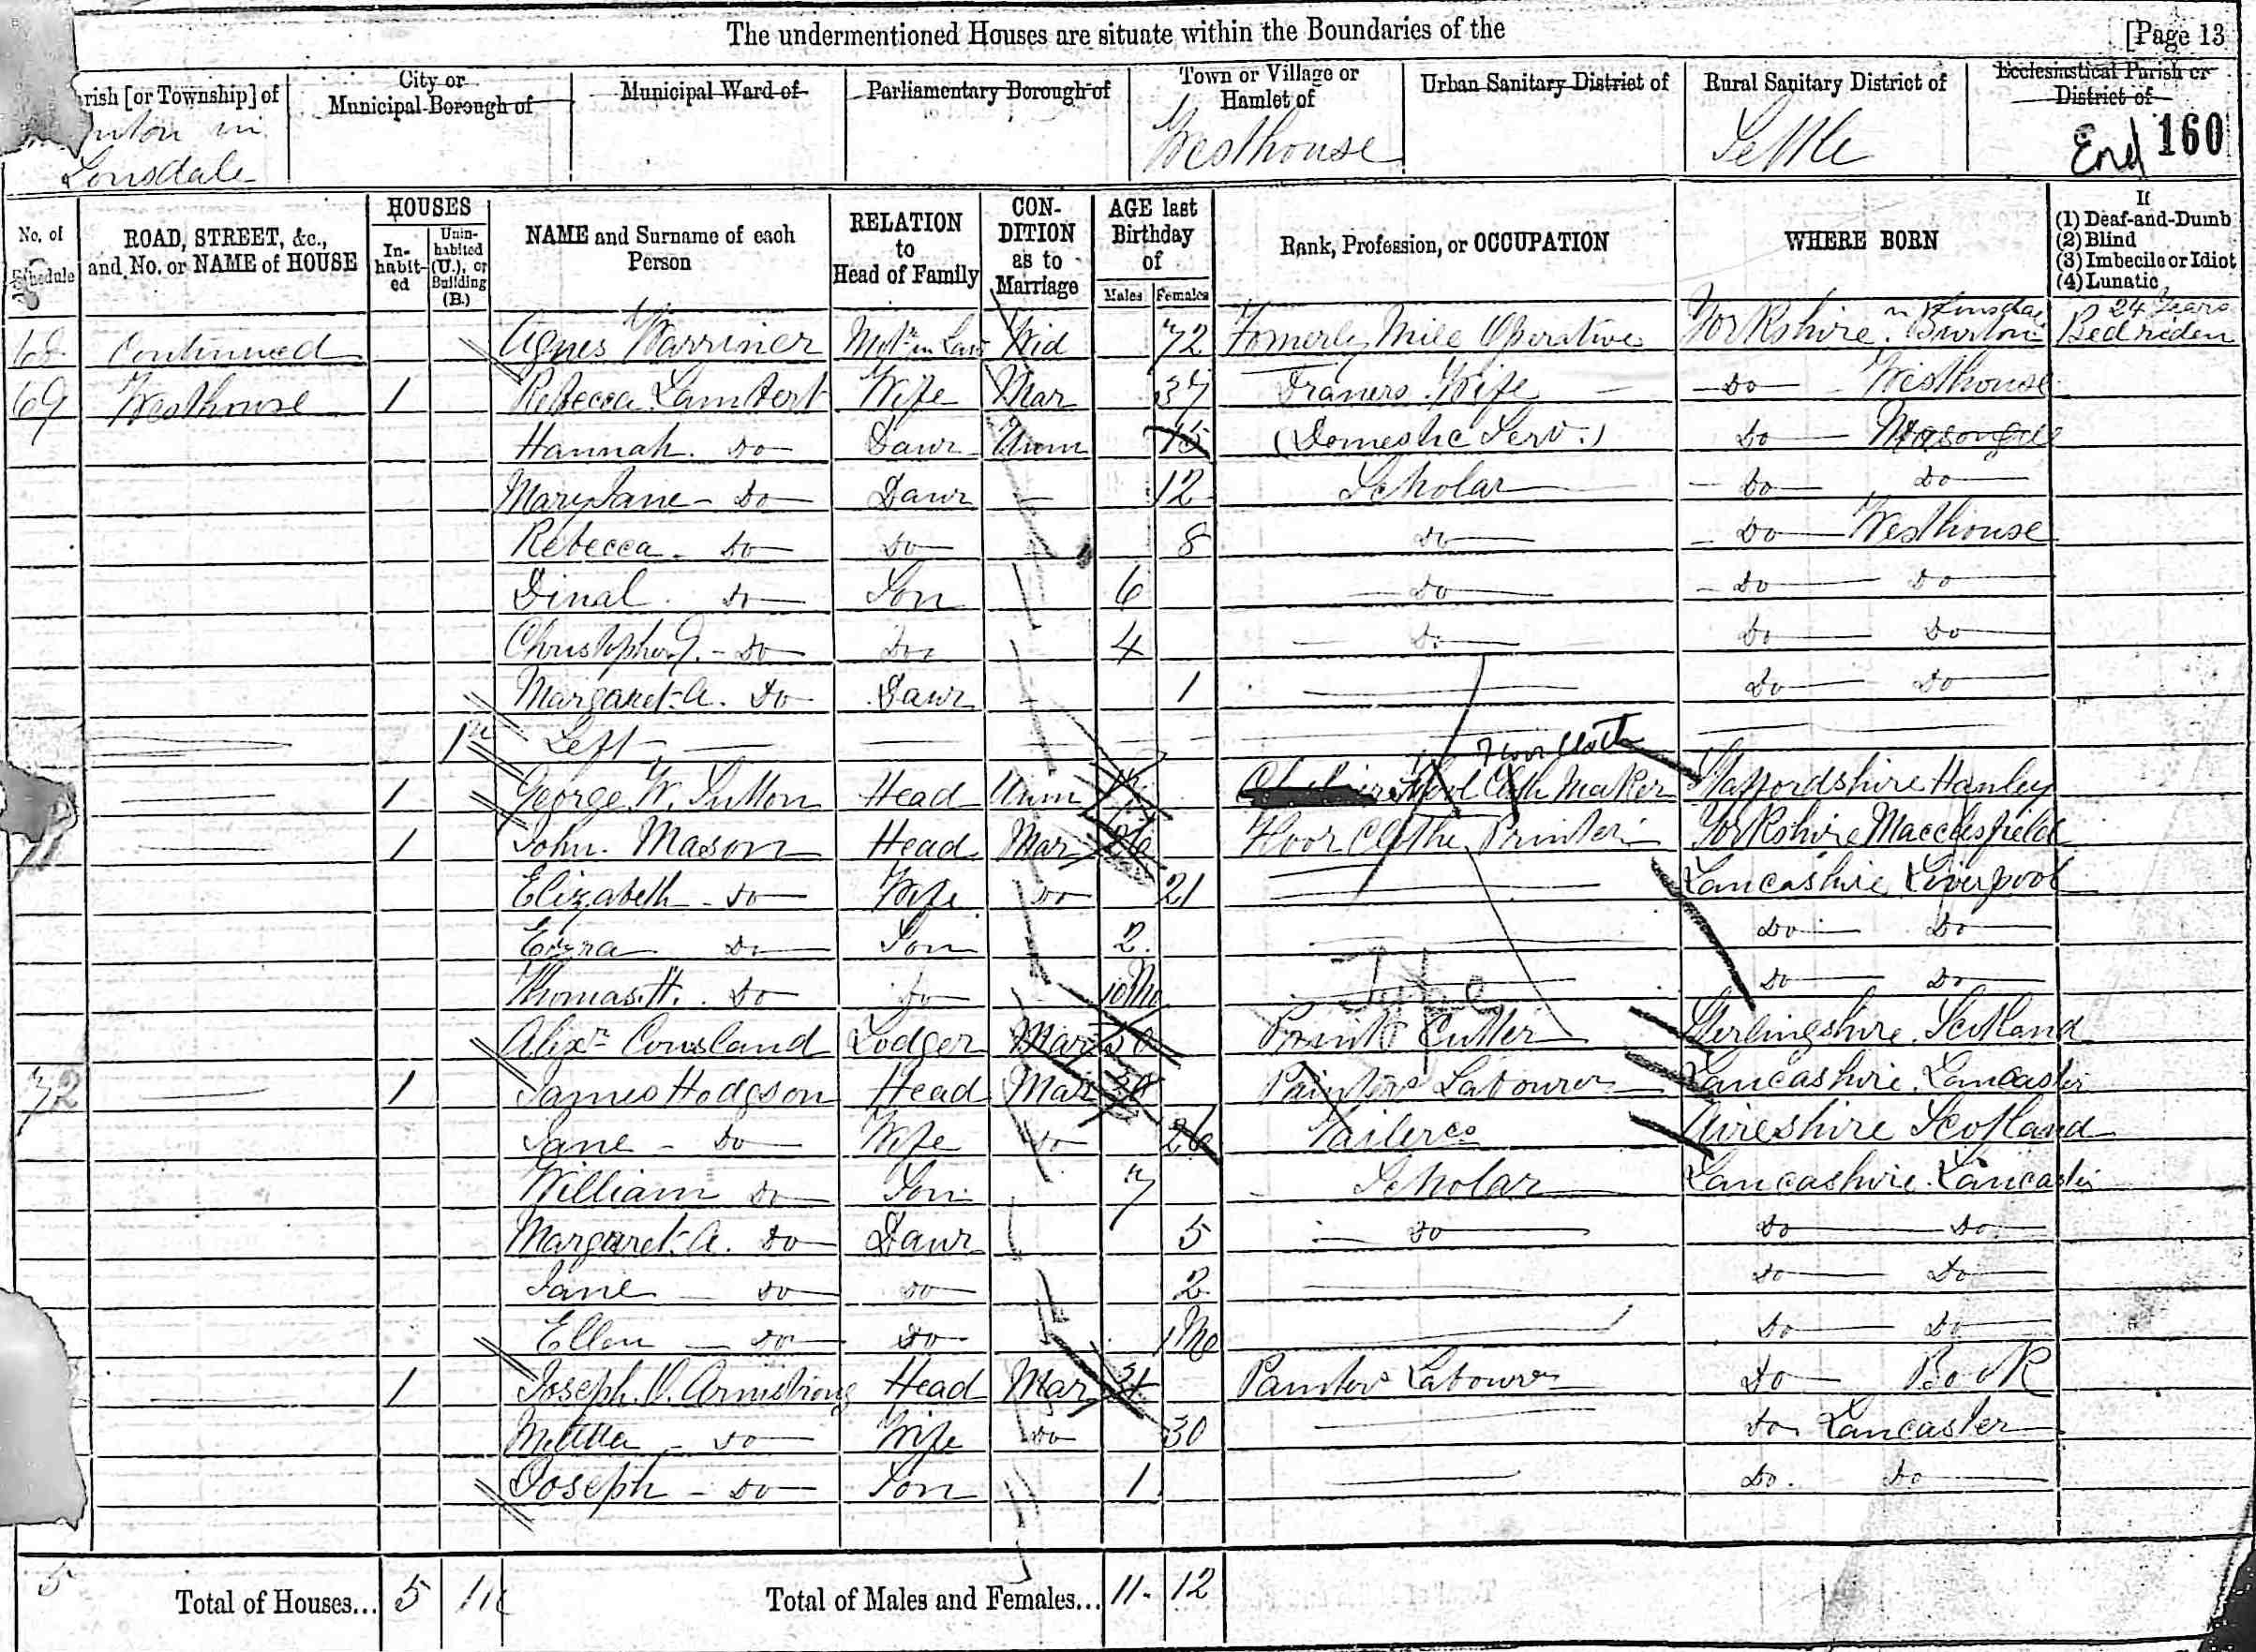 The undermentioned Houses are situate within the Boundaries of the [Page 13
rish [or Township] of
nton in
Lonsdale
City or Municipal Borough of
Municipal Ward of
Parliamentary Borough of
Town or Village or Hamlet of
Westhouse
Urban Sanitary District of
Rural Sanitary District of
Settle
Ecclesiastical Parish or District of
End 160
No. of Schedule
ROAD, STREET, &c., and No. or NAME of HOUSE
HOUSES
Inhabited
Uninhabited (U.), or Building (B.)
NAME and Surname of each Person
RELATION to Head of Family
CONDITION as to Marriage
AGE last Birthday of
Males Females
Rank, Profession, or OCCUPATION
WHERE BORN
If
(1) Deaf-and-Dumb
(2) Blind
(3) Imbecile or Idiot
(4) Lunatic
68 Continued Agnes Warriner Moth in Law Wid 72 Formerly Mill Operative Yorkshire Burton in Lonsdale 24 Years Bedriden
69 Westhouse 1 Rebecca Lambert Wife Mar 37 Drainers Wife Do Westhouse
Hannah Do Daur Unm 15 (Domestic Serv.) Do Masongill
Mary Jane Do Daur 12 Scholar Do Do
Rebecca Do Do 8 Do Do Westhouse
Dinal Do Son 6 Do Do Do
Christopher J. Do Do 4 Do Do Do
Margaret A. Do Daur 1 Do Do
Left
1 George W. Sutton Head Unm Floor Cloth Maker Staffordshire Hanley
71 1 John Mason Head Mar 26 Floor Clothe Printer Yorkshire Macclesfield
Elizabeth Do Wife Do 21 Lancashire Liverpool
Ezra Do Son 2 Do Do
Thomas H. Do Do 10 Mo Do Do
Alexr Cousland Lodger Mar 50 Print Cutter Type Sterlingshire Scotland
72 1 James Hodgson Head Mar 30 Painters Labourer Lancashire Lancaster
Jane Do Wife Do 26 Tailoress Aireshire Scotland
William Do Son 7 Scholar Lancashire Lancaster
Margaret A. Do Daur 5 Do Do Do
Jane Do Do 2 Do Do
Ellen Do Do 1 Mo Do Do
1 Joseph Armstrong Head Mar 31 Painters Labourer Do
Do Wife Do 30 Do Lancaster
Joseph Do Son 1 Do Do
5 Total of Houses... 5 Total of Males and Females... 11 12